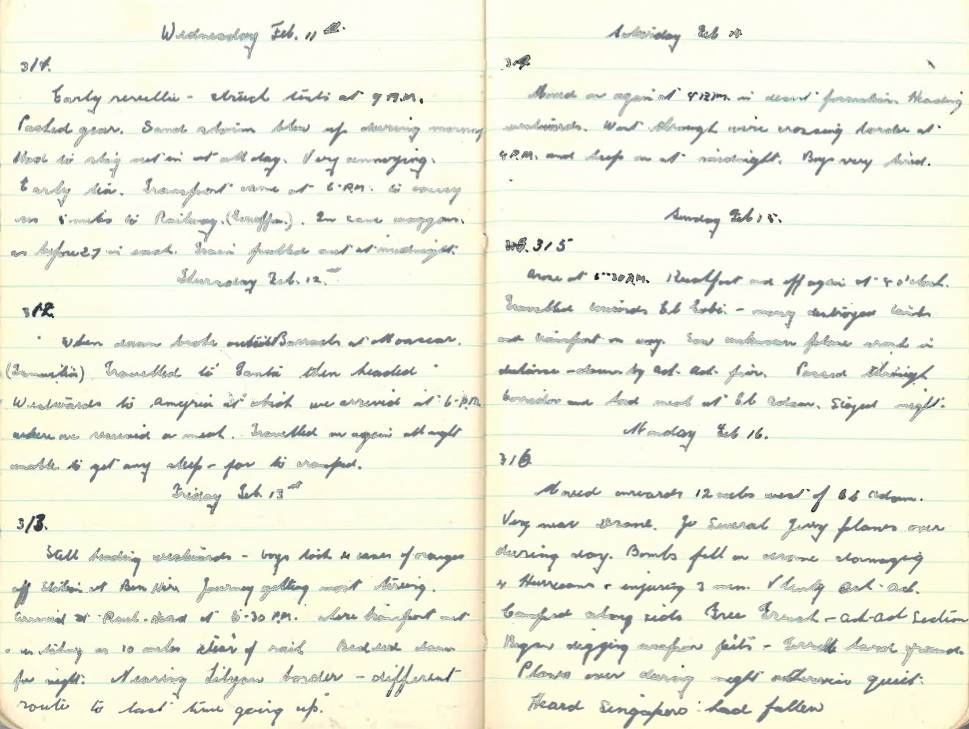 Wednesday Feb. 11th.
311.
Early reveille - struck tents at 9 A.M.
Packed gear. Sand storm blew up during morning
Had to stay out in it all day. Very annoying.
Early tea. Transport came at 6 P.M. to convey
us 5 miles to Railway. In cane waggons.
as before 27 in each. Train pulled out at midnight.
Thursday Feb. 12th
312.
When dawn broke outside Barracks at Moascar.
(Ismailia) Travelled to Tanta then headed
Westwards to Amyria at which we arrived at 6 P.M.
where we received a meal. Travelled on again all night
unable to get any sleep - far to cramped.
Friday Feb. 13th
313.
Still heading westwards - boys took cases of oranges
off Station at Journey getting most tiring.
Arrived at Rail-Head at 6-30 P.M. where transport
us 10 miles clear of rail. Bedded down
for night. Nearing Libyan border - different
route to last time going up.
Saturday Feb 14
314.
Moved on again at in desert formation. Heading
westwards. Went through wire crossing border at
4 P.M. and kept on at midnight. Boys very tired.
Sunday Feb 15.
315
Arose at 6-30 A.M. Breakfast and off again at 8 o'clock.
Travelled towards - many destroyed tanks
and transport on way. Saw unknown plane crash in
distance - down by ack-ack fire. Passed through
corridor and had meal at El Adem. Stayed night.
Monday Feb 16.
316
Moved onwards 12 miles west of El Adem.
Very near drome. Several Jerry planes over
during day. Bombs fell on drome damaging
4 Hurricanes & injuring 3 men. Plenty ack-ack.
Camped along side Free French - ack-ack Section
Began digging weapon pits - terrible hard ground
Planes over during night otherwise quiet.
Heard Singapore had fallen